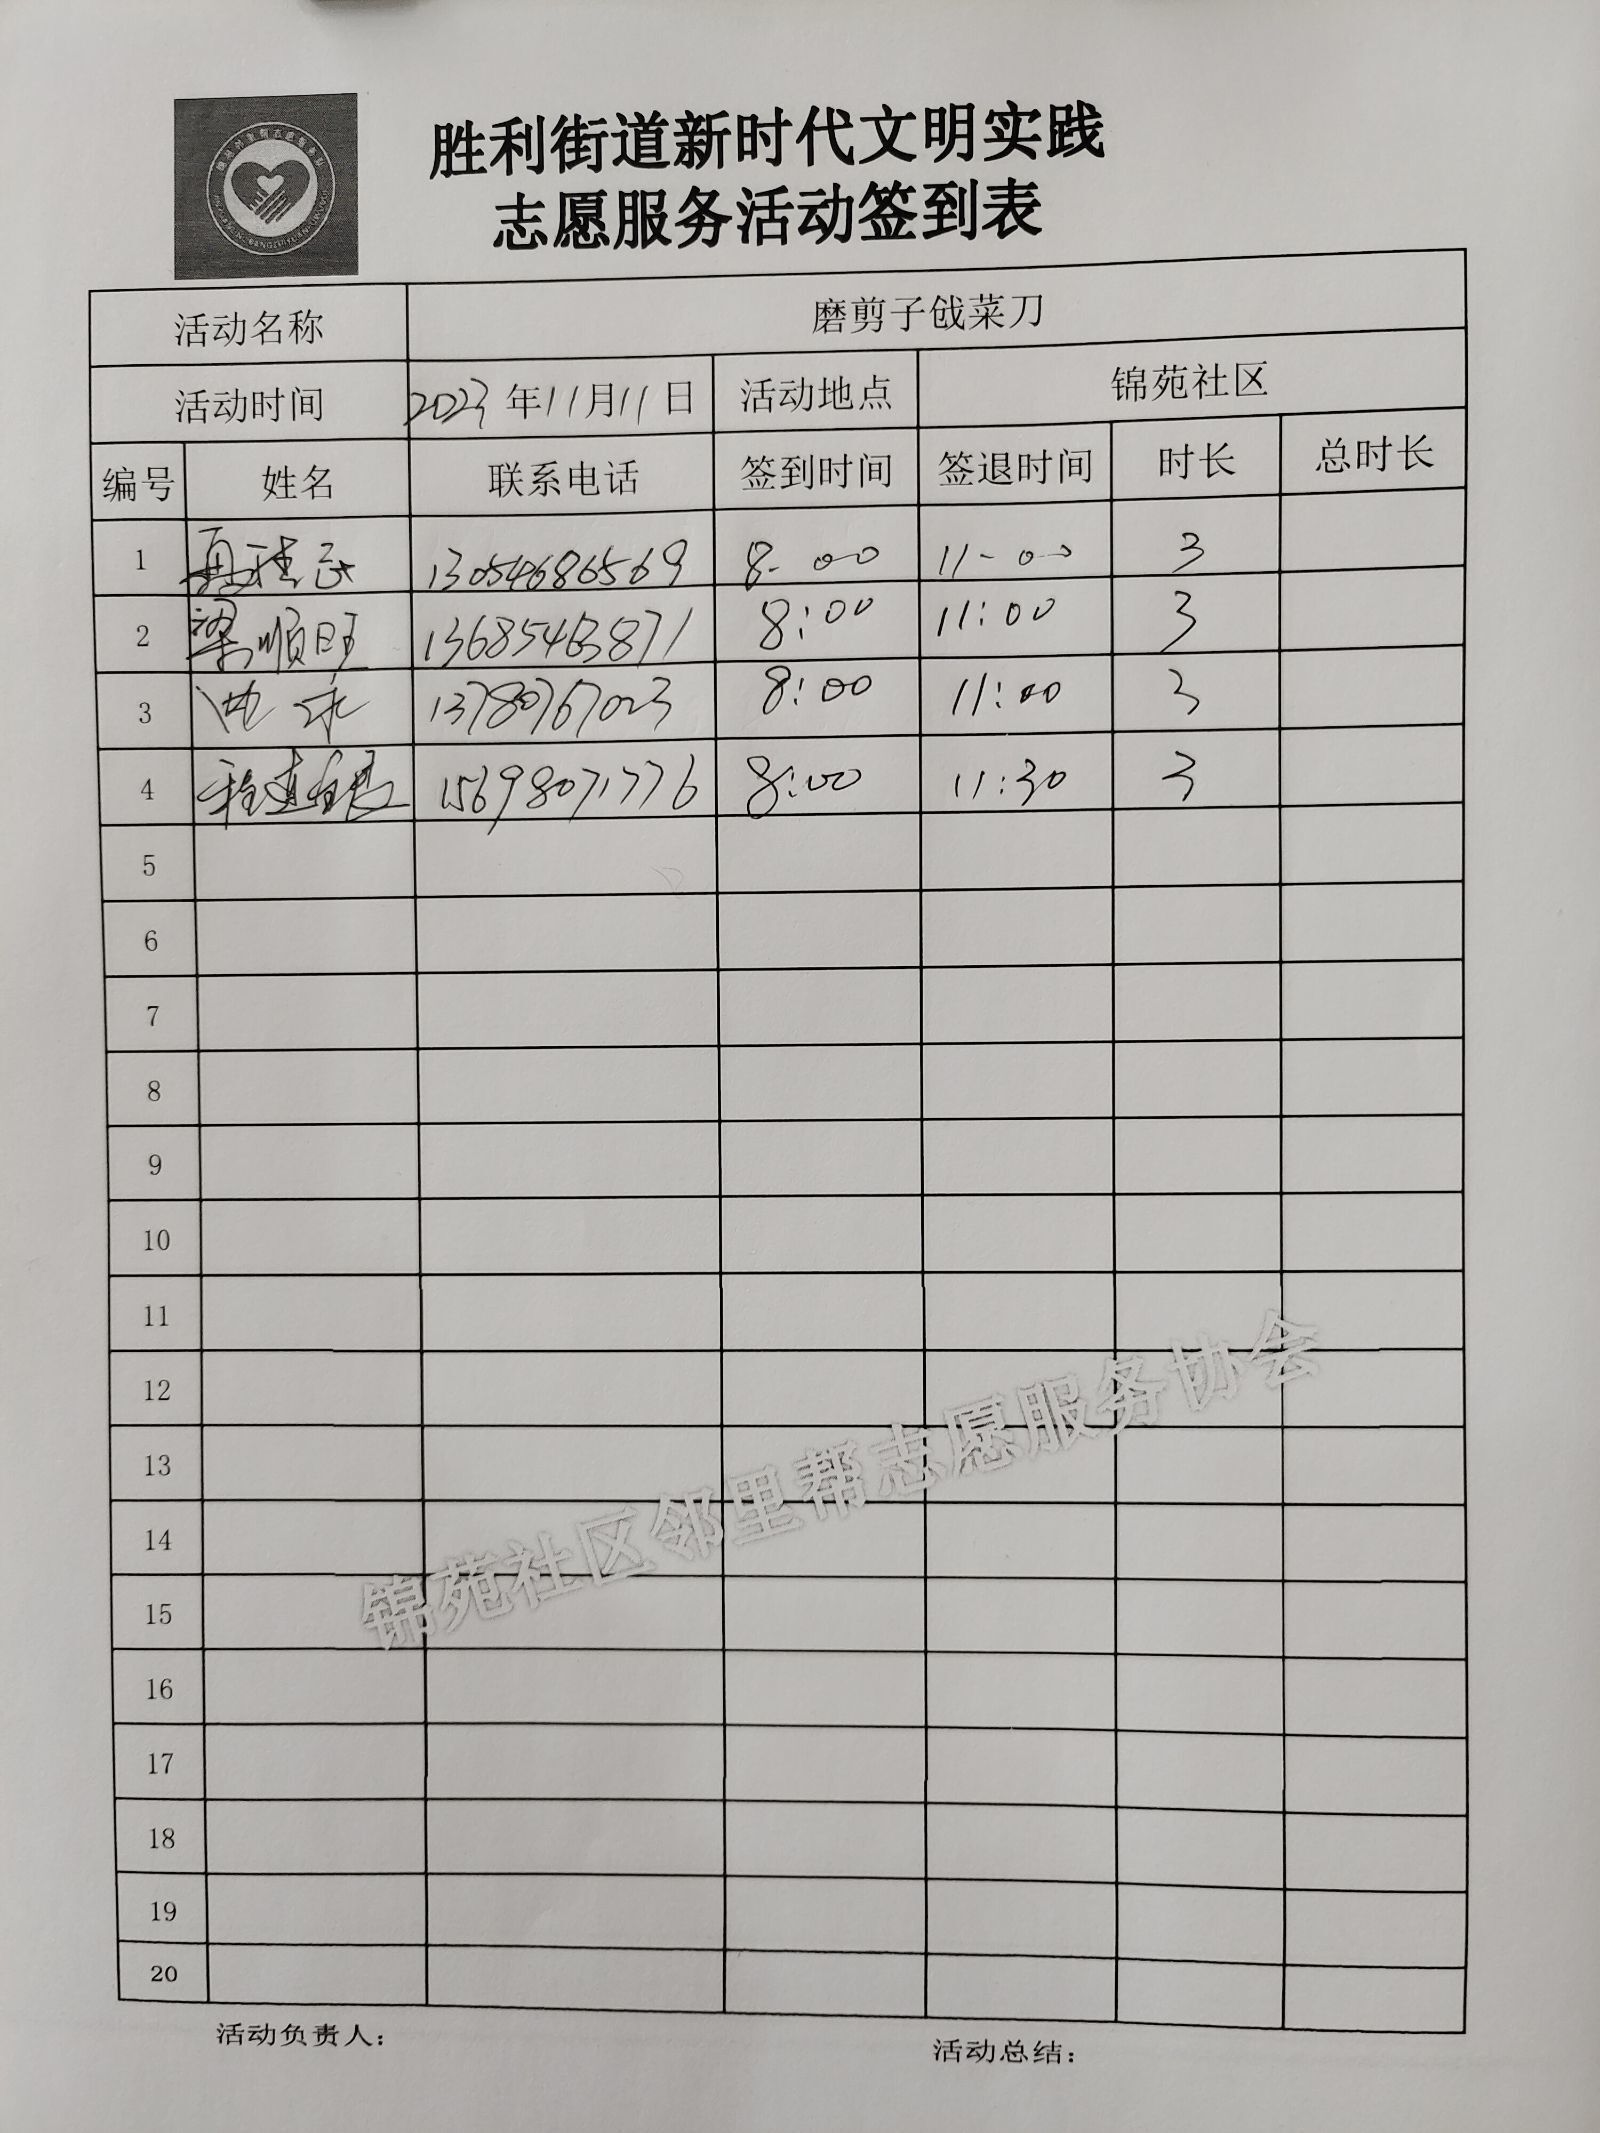 胜利街道新时代文明实践
志愿服务活动签到表
活动名称 磨剪子戗菜刀
活动时间 2023年11月11日 活动地点 锦苑社区
编号 姓名 联系电话 签到时间 签退时间 时长 总时长
1 13054686569 8-00 11-00 3
2 梁顺旺 13685463871 8:00 11:00 3
3 13780767023 8:00 11:00 3
4 程连银 15698071776 8:00 11:30 3
5
6
7
8
9
10
11
12
13
14
15
16
17
18
19
20
锦苑社区邻里帮志愿服务协会
活动负责人： 活动总结：